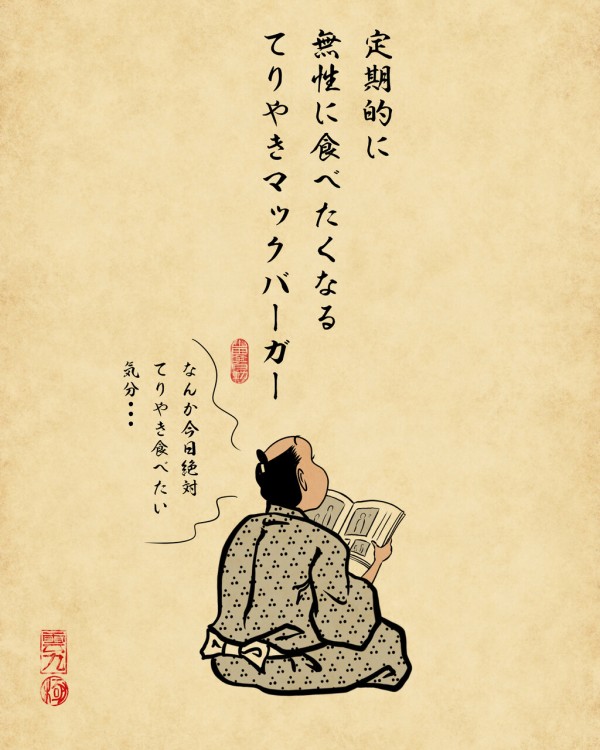 定期的に
無性に食べたくなる
てりやきマックバーガー
なんか今日絶対
てりやき食べたい
気分・・・